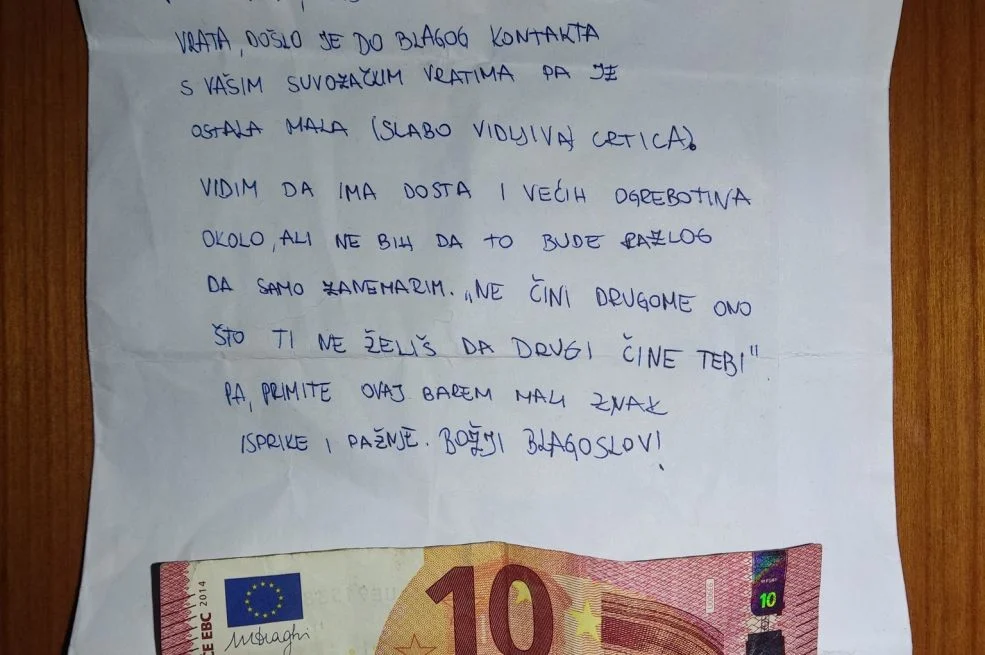 VRATA, DOŠLO JE DO BLAGOG KONTAKTA
S VAŠIM SUVOZAČKIM VRATIMA PA JE
OSTALA MALA (SLABO VIDLJIVA) CRTICA).
VIDIM DA IMA DOSTA I VEĆIH OGREBOTINA
OKOLO, ALI NE BIH DA TO BUDE RAZLOG
DA SAMO ZANEMARIM. „NE ČINI DRUGOME ONO
ŠTO TI NE ŽELIŠ DA DRUGI ČINE TEBI"
PA, PRIMITE OVAJ BAREM MALI ZNAK
ISPRIKE I PAŽNJE. BOŽJI BLAGOSLOV!
EBC 2014
10
10